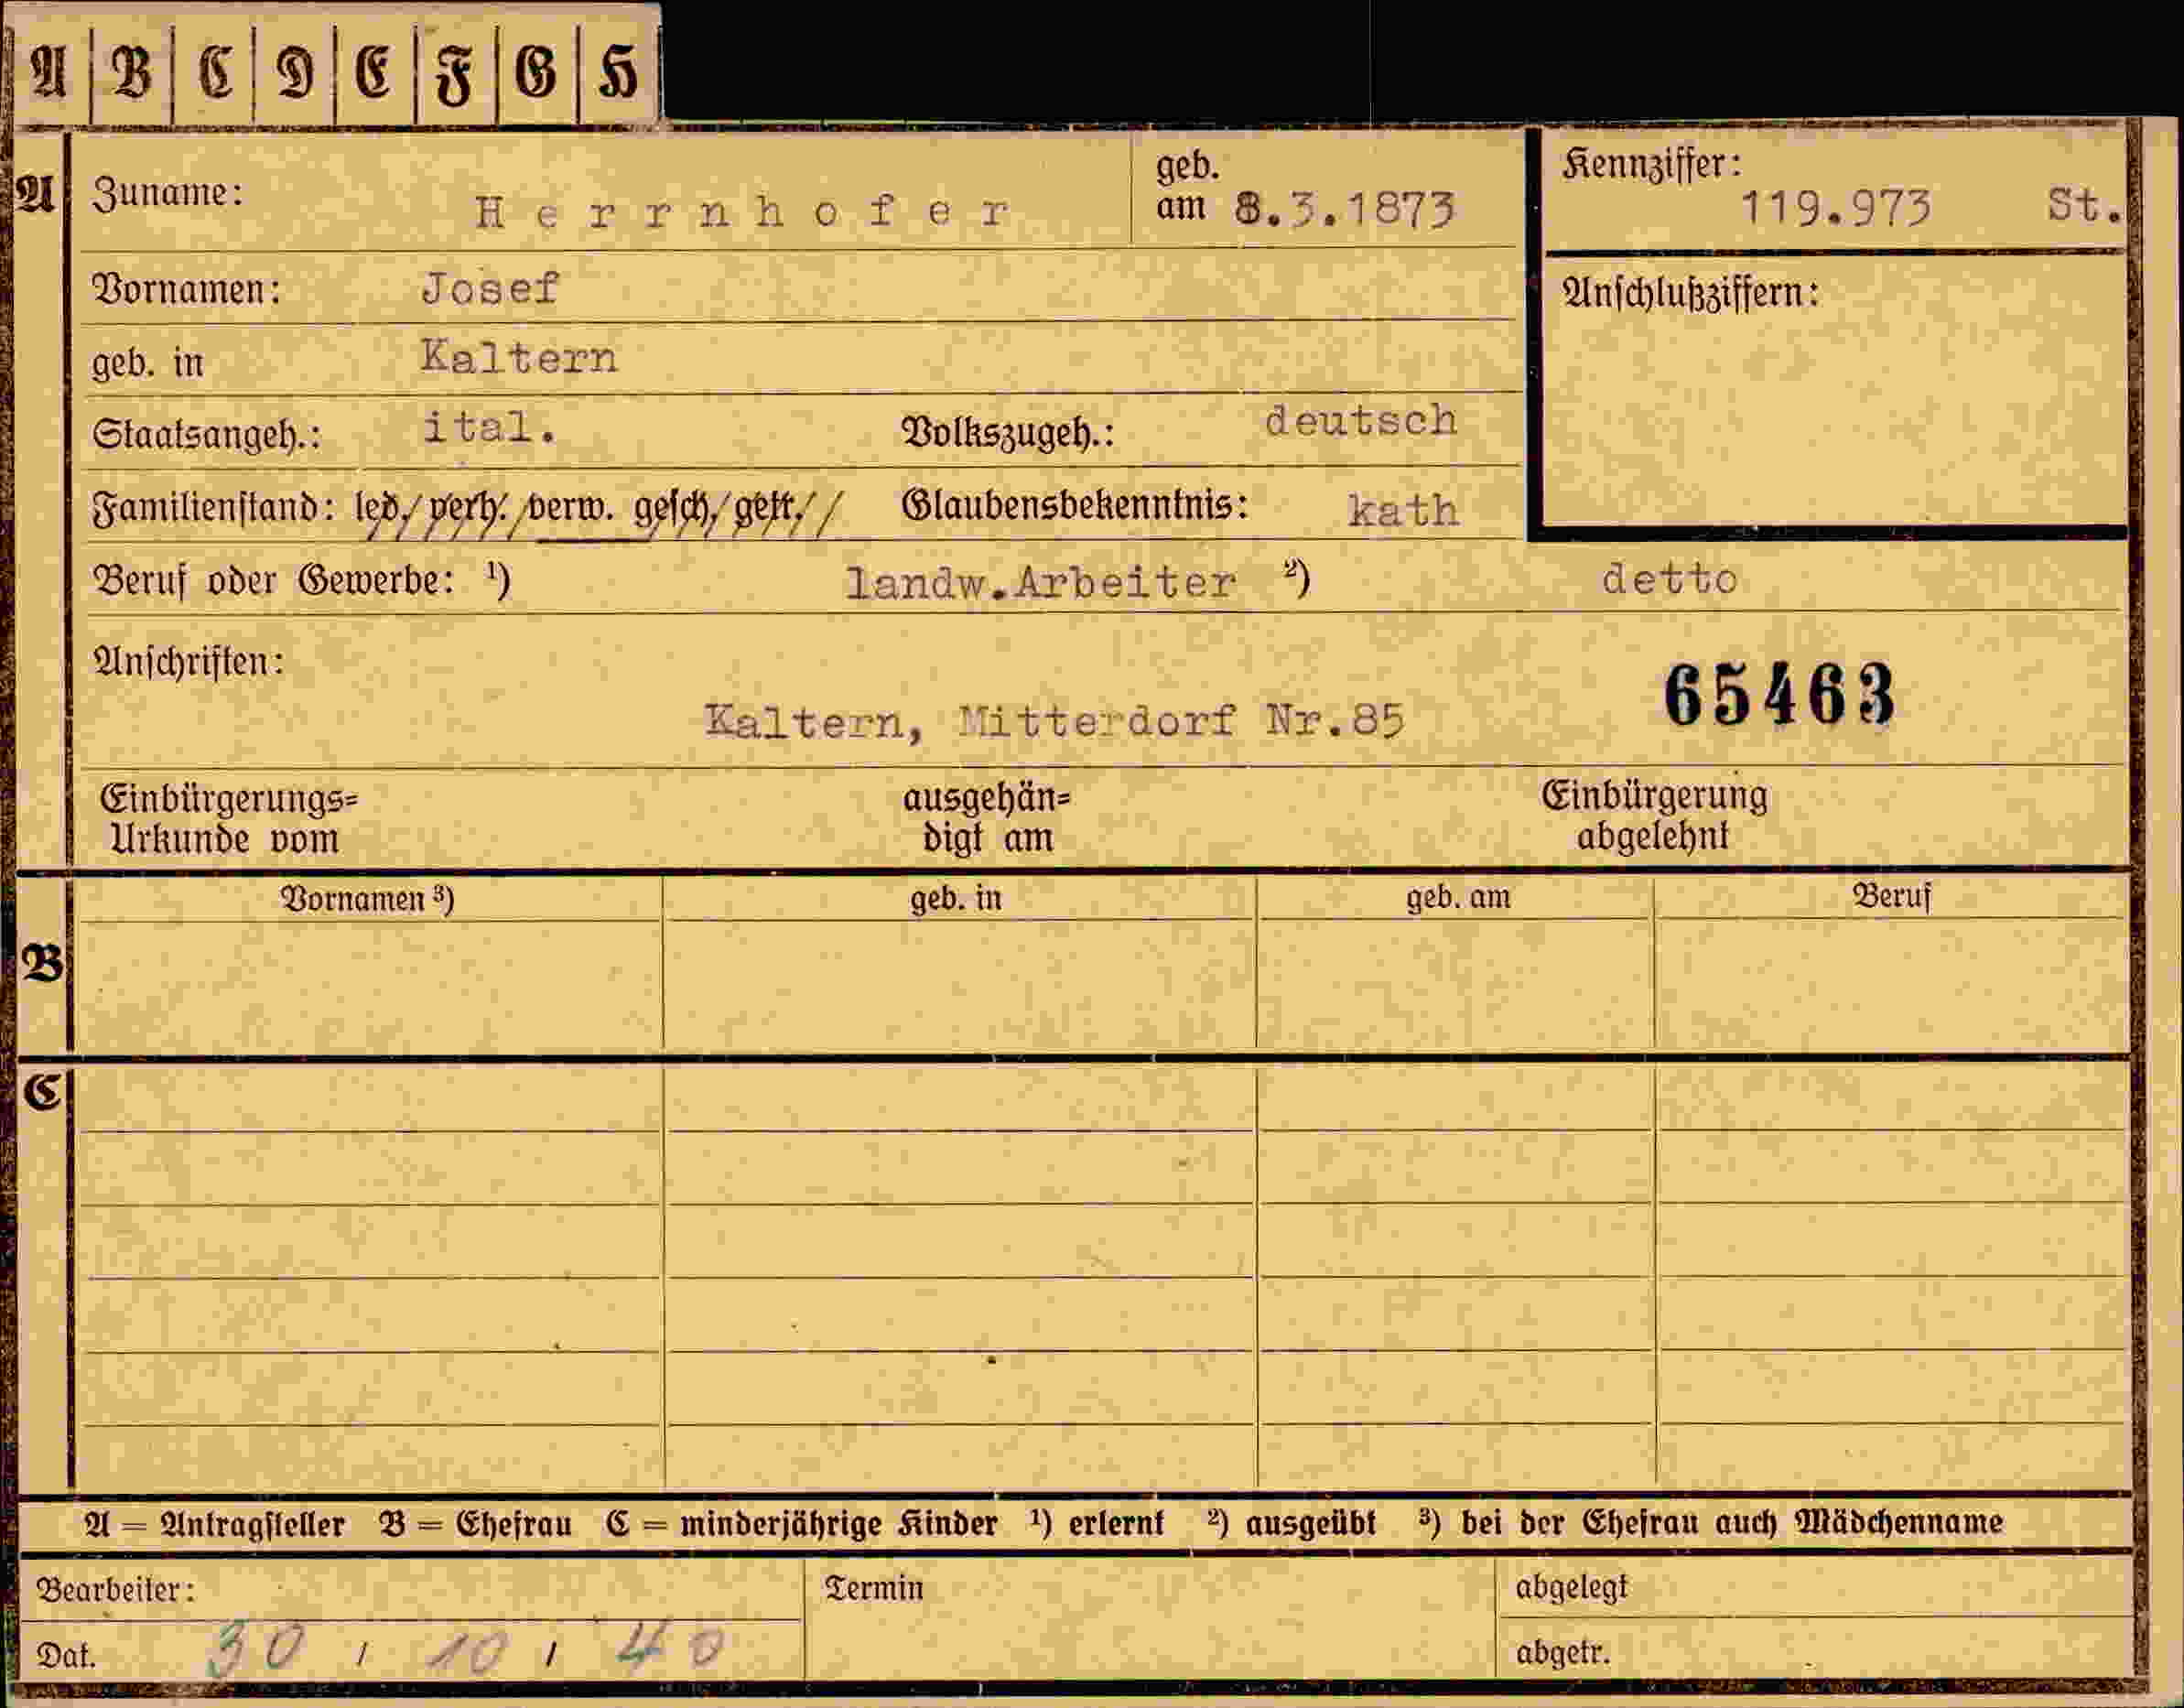 A B C D E F G H
A Zuname: Herrnhofer geb. am 8.3.1873 Kennziffer: 119.973 St.
Vornamen: Josef Anschlußziffern:
geb. in Kaltern
Staatsangeh.: ital. Volkszugeh.: deutsch
Familienstand: led. verh. verw. gesch. getr. Glaubensbekenntnis: kath
Beruf oder Gewerbe: ¹) landw.Arbeiter ²) detto
Anschriften: 65463
Kaltern, Mitterdorf Nr.85
Einbürgerungs= ausgehän= Einbürgerung
Urkunde vom digt am abgelehnt
Vornamen ³) geb. in geb. am Beruf
B
C
A = Antragsteller B = Ehefrau C = minderjährige Kinder ¹) erlernt ²) ausgeübt ³) bei der Ehefrau auch Mädchenname
Bearbeiter: Termin abgelegt
Dat. 30 / 10 / 40 abgetr.